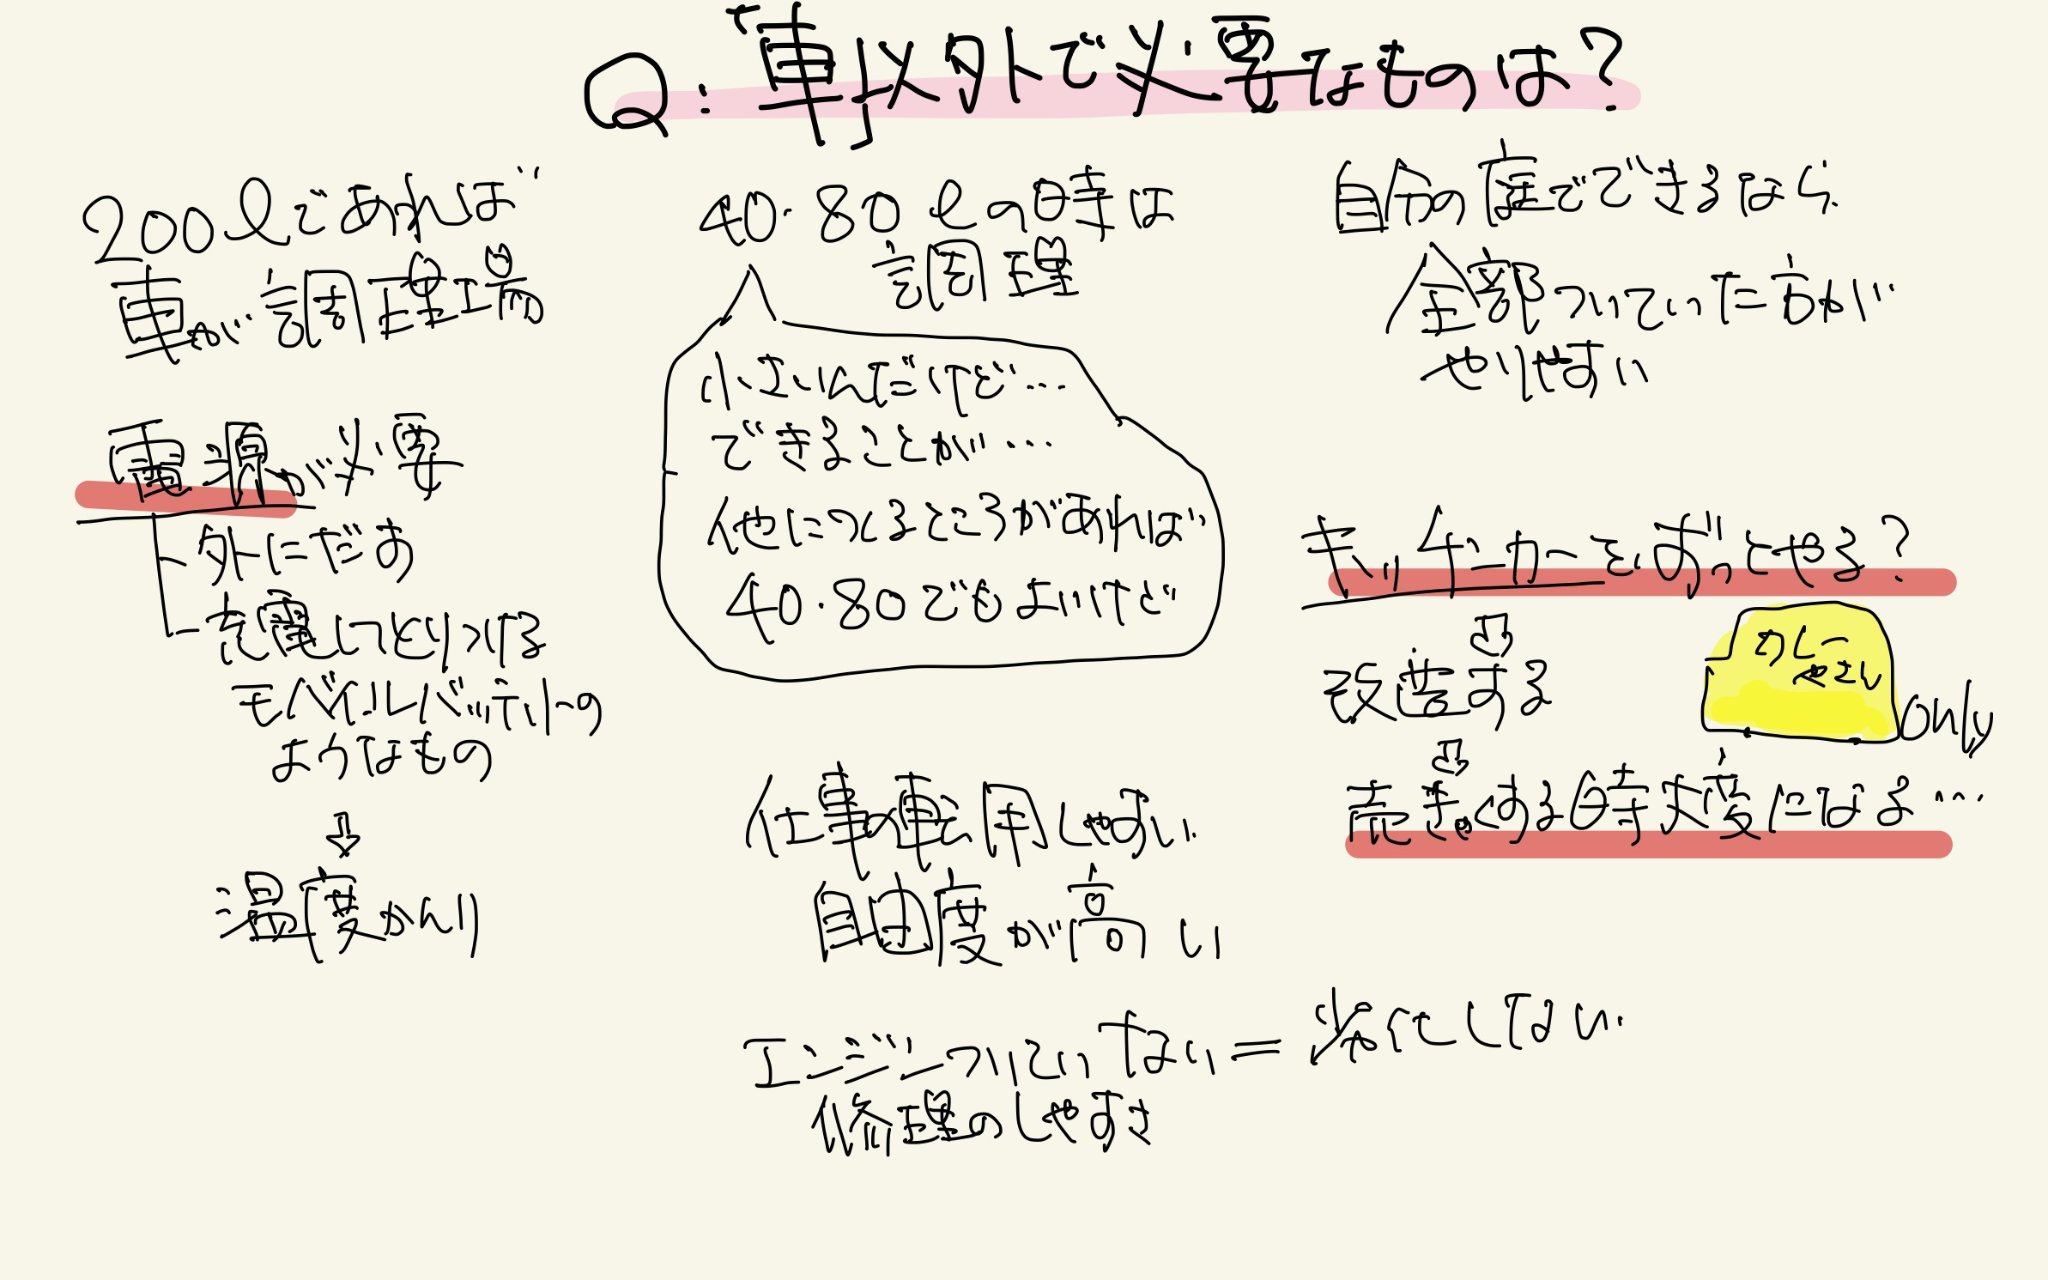 Q:「車」以外で必要なものは?
200ℓであれば
車が調理場
電源が必要
外にだす
充電してとりつける
モバイルバッテリーの
ようなもの
⇩
温度かんり
40・80ℓの時は
調理
小さいんだけど…
できることが…
他につくるところがあれば
40・80でもよいけど
仕事の転用しやすい
自由度が高い
エンジンついていない=劣化しない
修理のしやすさ
自分の庭でできるなら
全部ついていた方が
やりやすい
キッチンカーをずっとやる?
⇩
改造する
⇩
売きゃくする時大変になる…
カレー
やさん
only